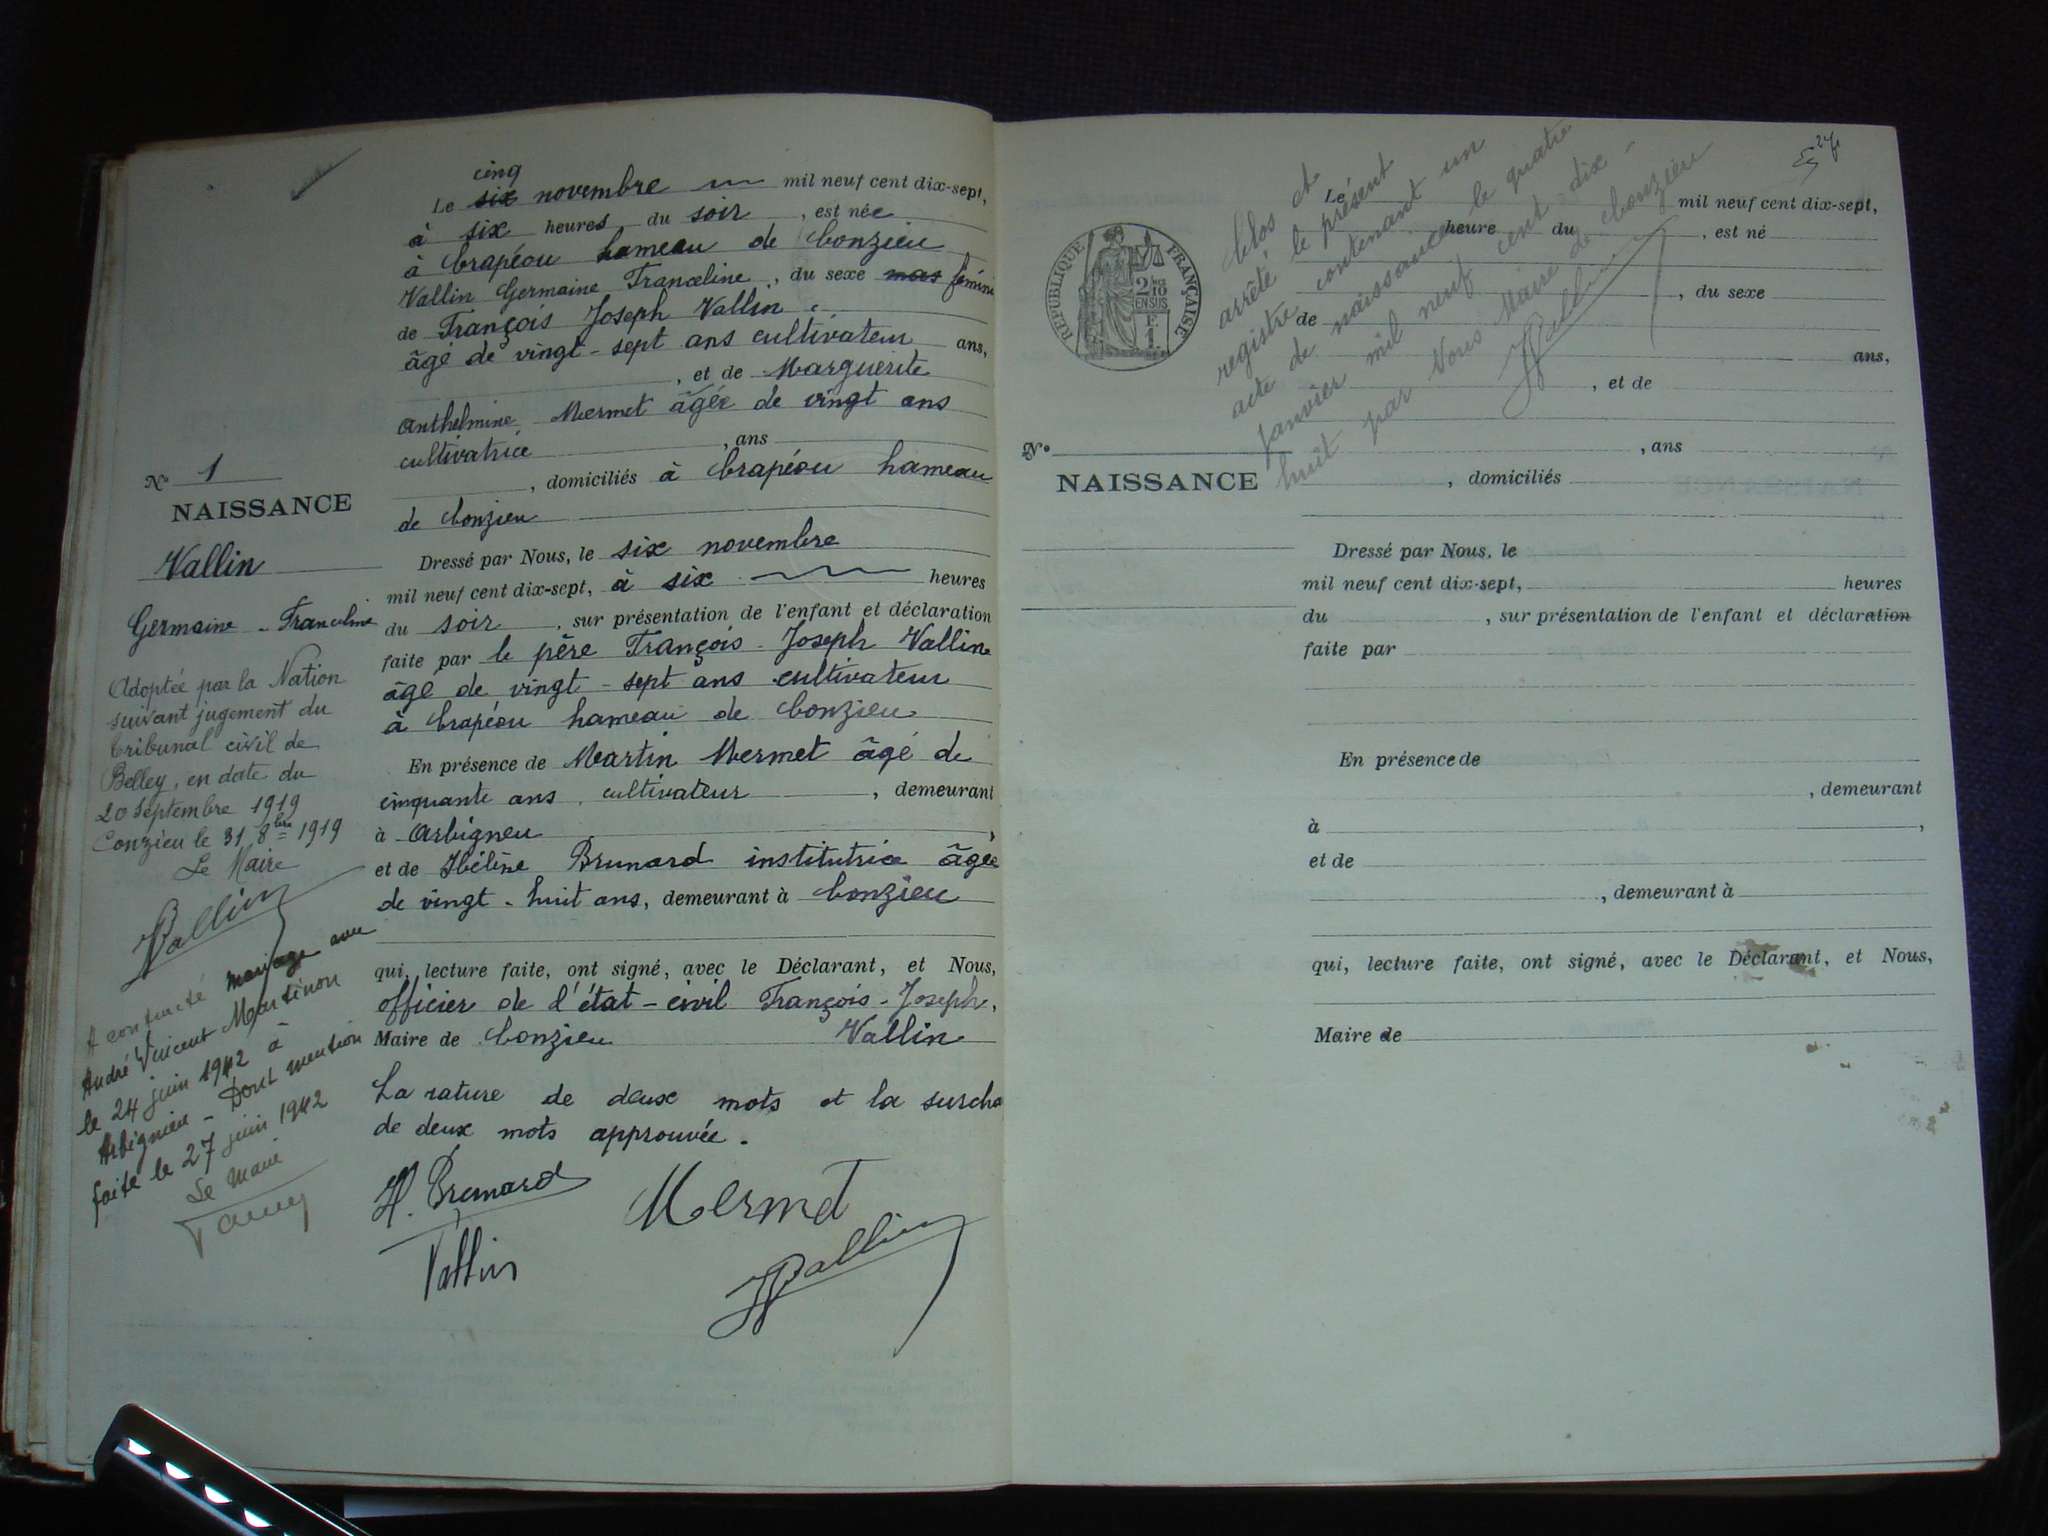 cinq
Le six novembre mil neuf cent dix-sept,
à six heures du soir, est née
à Crapéou hameau de Conzieu
Vallin Germaine Franceline, du sexe mas fémini
de François Joseph Vallin
âgé de vingt-sept ans cultivateur ans,
, et de Marguerite
Anthelmine Mermet âgée de vingt ans
cultivatrice, ans
, domiciliés à Crapéou hameau
de Conzieu
Dressé par Nous, le six novembre
mil neuf cent dix-sept, à six heures
du soir, sur présentation de l'enfant et déclaration
faite par le père François-Joseph Vallin
âgé de vingt-sept ans cultivateur
à Crapéou hameau de Conzieu
En présence de Martin Mermet âgé de
cinquante ans, cultivateur, demeurant
à Arbigneu,
et de Hélène Brunard institutrice âgée
de vingt-huit ans, demeurant à Conzieu
qui, lecture faite, ont signé, avec le Déclarant, et Nous,
officier de l'état-civil François-Joseph,
Maire de Conzieu Vallin
La rature de deux mots et la surcha
de deux mots approuvée.
H. Brunard Mermet
Vallin
JVallin
N° 1
NAISSANCE
Vallin
Germaine-Franceline
Adoptée par la Nation
suivant jugement du
Tribunal civil de
Belley, en date du
20 Septembre 1919
Conzieu le 31 8bre 1919
Le Maire
JVallin
A contracté mariage avec
André Vincent Martinon
le 24 juin 1942 à
Arbignieu - Dont mention
faite le 27 juin 1942
Le Maire
Clos et
arrêté le présent
registre contenant un
acte de naissance le quatre
janvier mil neuf cent dix-
huit par Nous Maire de Conzieu
JVallin
RÉPUBLIQUE FRANÇAISE
2/10
EN SUS
F.
1.
Le mil neuf cent dix-sept,
heure du, est né
, du sexe
de
ans,
, et de
, ans
N°
NAISSANCE
, domiciliés
Dressé par Nous, le
mil neuf cent dix-sept, heures
du, sur présentation de l'enfant et déclaration
faite par
En présence de
, demeurant
à,
et de
, demeurant à
qui, lecture faite, ont signé, avec le Déclarant, et Nous,
Maire de